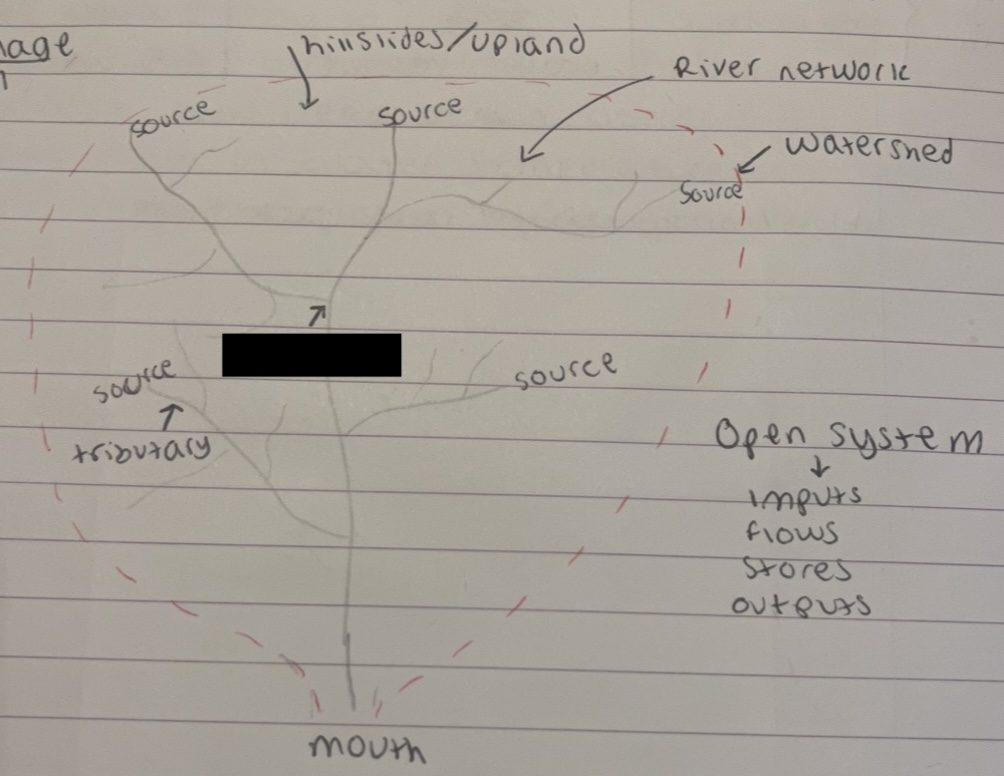 hillslides/upland
River network
source
source
Watershed
Source
source
source
tributary
Open system
inputs
flows
stores
outputs
mouth